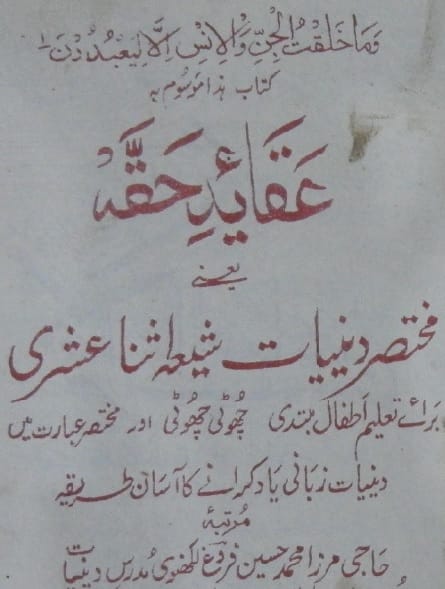 وَمَا خَلَقْتُ الْجِنَّ وَالْاِنْسَ اِلَّا لِيَعْبُدُوْنَ ۱
کتاب ہذا موسوم بہ
عَقَائِدِ حَقَّہ
یعنے
مختصر دینیات شیعہ اثنا عشری
برائے تعلیم اطفال مبتدی چھوٹی چھوٹی اور مختصر عبارت میں
دینیات زبانی یاد کرانے کا آسان طریقہ
مُرتبۂ
حاجی مرزا محمد حسین فروغ لکھنوی مُدرس دینیات